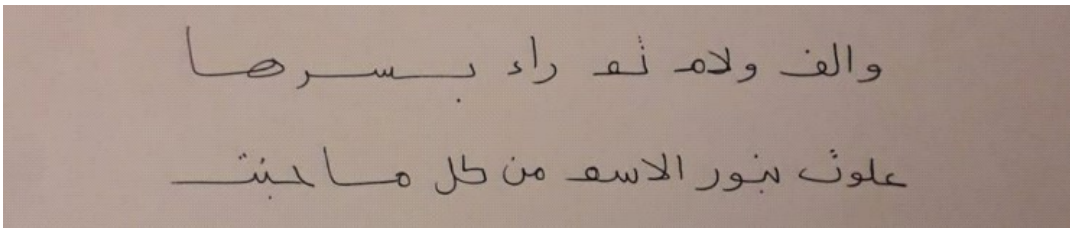 والف ولام ثم راء بسرها
علوت بنور الاسم من كل ما جنت